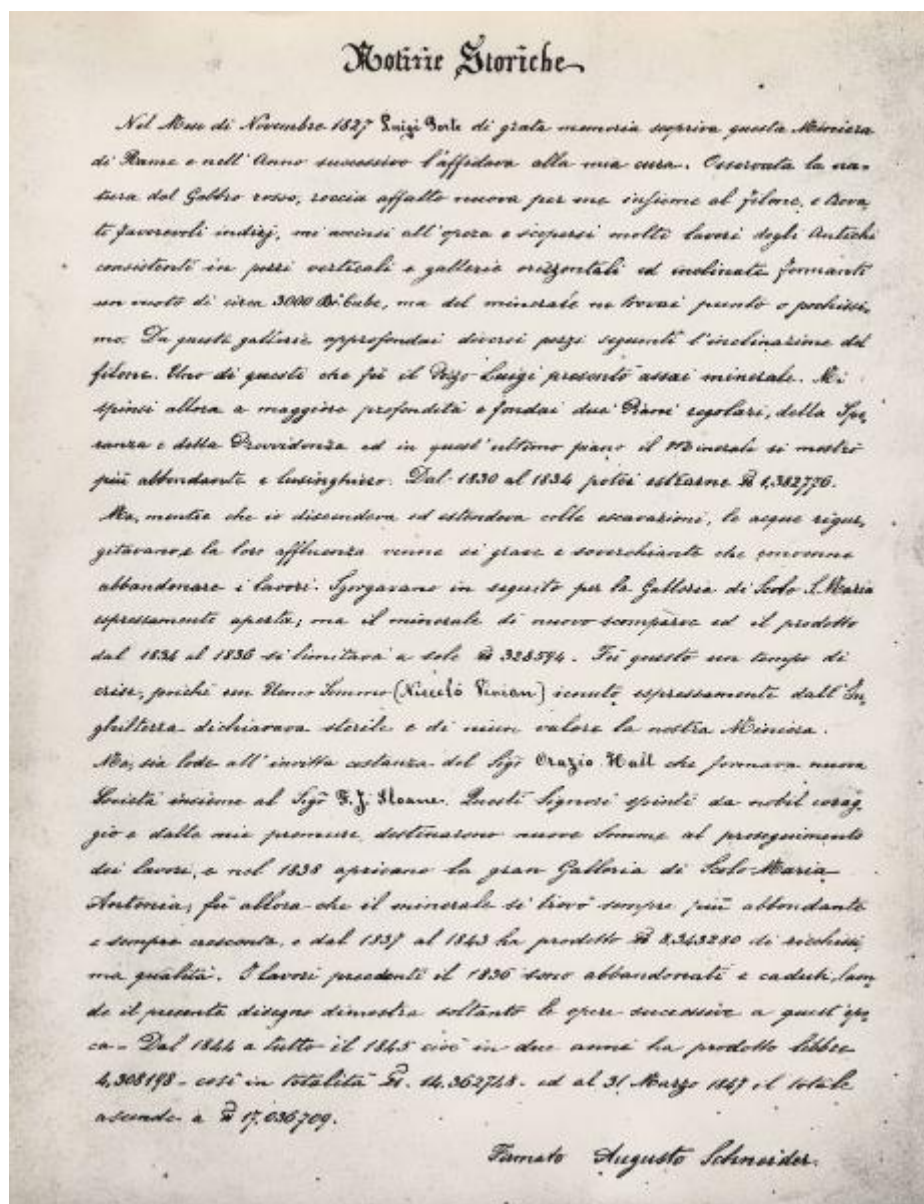 Notizie Storiche
Nel Mese di Novembre 1827 Luigi Porte di grata memoria scopriva questa Miniera
di Rame e nell'Anno successivo l'affidava alla mia cura. Osservata la na-
tura del Gabbro rosso, roccia affatto nuova per me insieme al filone, e trova
ti favorevoli indizj, mi accinsi all'opera e scopersi molti lavori degli Antichi
consistenti in pozzi verticali e gallerie orizzontali ed inclinate formanti
un vuoto di circa 3000 B. Cube, ma del minerale ne trovai punto o pochissi-
mo. Da queste gallerie approfondai diversi pozzi seguenti l'inclinazione del
filone. Uno di questi che fù il Pozzo Luigi presentò assai minerale. Mi
spinsi allora a maggiore profondità e fondai due Piani regolari, della Spe-
ranza e della Provvidenza ed in quest'ultimo piano il Minerale si mostrò
più abbondante e lusinghiero. Dal 1830 al 1834 potei estrarne ℔ 1,382776.
Ma, mentre che io discendeva ed estendeva colle escavazioni, le acque rigur-
gitavano, e la loro affluenza venne si grave e soverchiante che convenne
abbandonare i lavori. Sgorgavano in seguito per la Galleria di Scolo S. Maria
espressamente aperta; ma il minerale di nuovo scomparve ed il prodotto
dal 1834 al 1836 si limitava a sole ℔ 328594. Fù questo un tempo di
crise, poichè un Uomo Sommo (Niccolò Vivian) venuto espressamente dall'In-
ghilterra dichiarava sterile e di niun valore la nostra Miniera.
Ma, sia lode all'invitta costanza del Sigr Orazio Hall che formava nuova
Società insieme al Sigr F. J. Sloane. Questi Signori spinti da nobil corag-
gio e dalle mie premure, destinarono nuove Somme al proseguimento
dei lavori, e nel 1838 aprivano la gran Galleria di Scolo Maria
Antonia; fù allora che il minerale si trovò sempre più abbondante
e sempre crescente, e dal 1837 al 1843 ha prodotto ℔ 8,343280 di ricchissi-
ma qualità. I lavori precedenti il 1836 sono abbandonati e caduti, laon-
de il presente disegno dimostra soltanto le opere successive a quest'epo-
ca - Dal 1844 a tutto il 1845 cioè in due anni ha prodotto libbre
4,308198 - così in totalità ℔. 14,362748 - ed al 31 Marzo 1847 il totale
ascende a ℔ 17,036709.
Firmato Augusto Schneider.